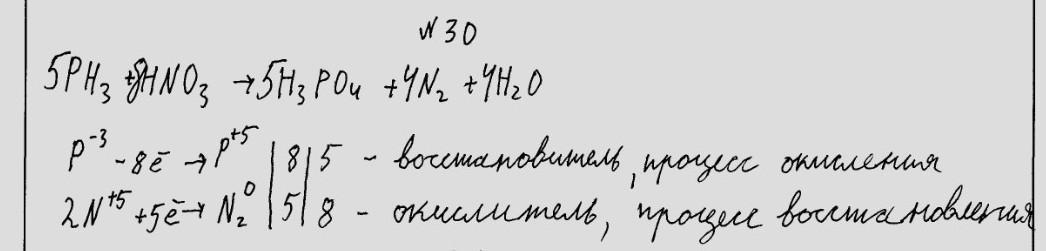 № 30
5PH₃ + 8HNO₃ → 5H₃PO₄ + 4N₂ + 4H₂O
P⁻³ - 8ē → P⁺⁵ | 8 | 5 - восстановитель, процесс окисления
2N⁺⁵ + 5ē → N₂⁰ | 5 | 8 - окислитель, процесс восстановления